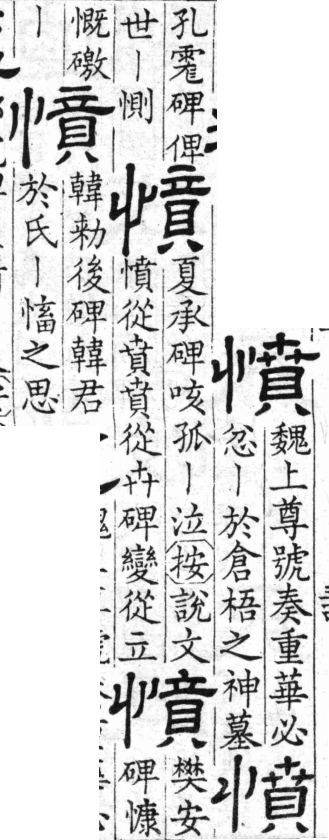 憤
魏上尊號奏重華必
忿丨於倉梧之神墓
憤
孔碑俾
世丨惻
憤
夏承碑咳孤丨泣按說文
憤從賁賁從卉碑變從立
憤
樊安
碑慷
慨礉
丨
憤
韓勑後碑韓君
於氏丨慉之思